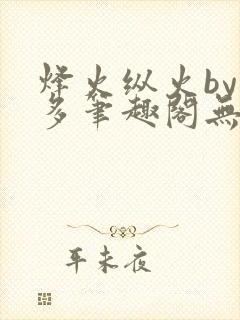 烽火纵火by
多笔趣阁無
平未夜